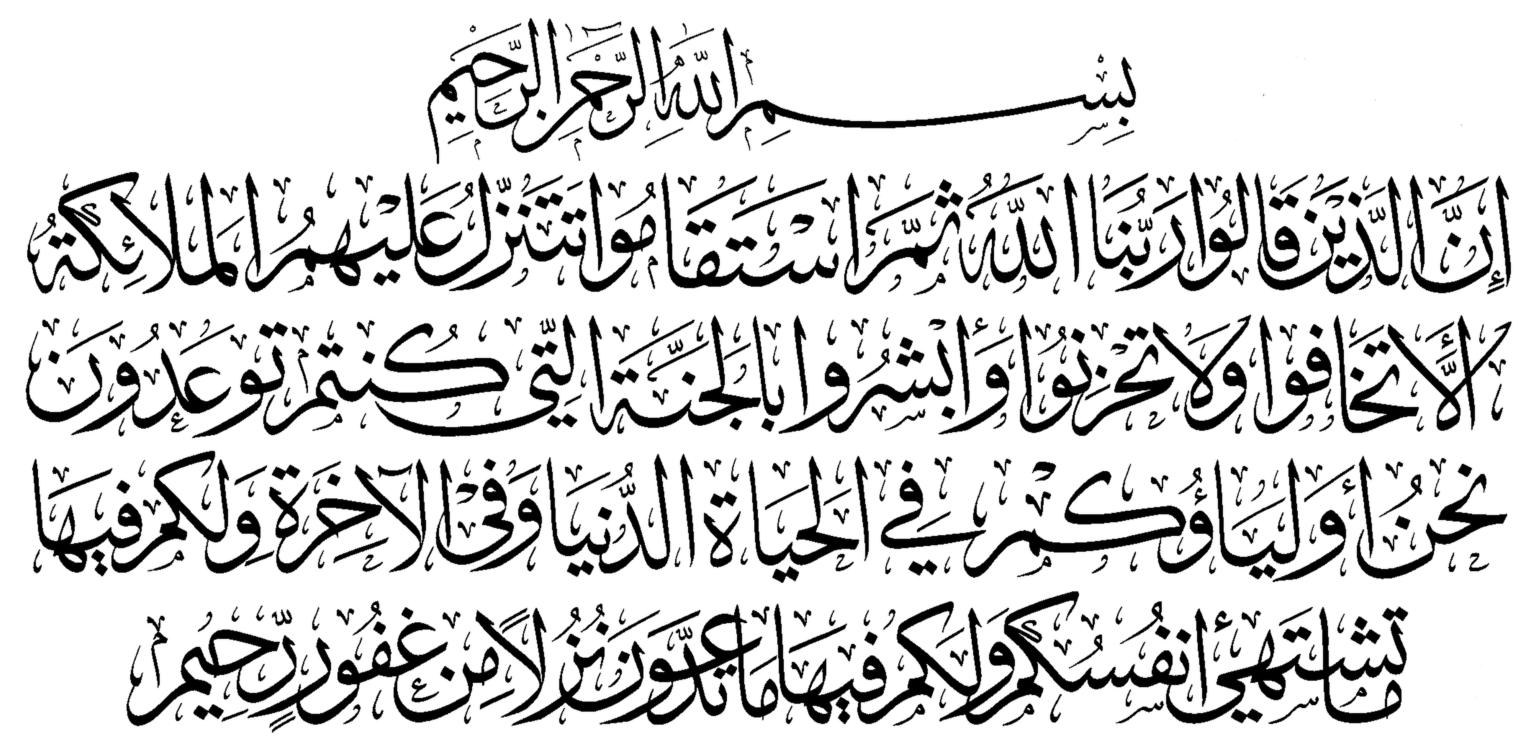 بِسْمِ اللَّهِ الرَّحْمَنِ الرَّحِيمِ
إِنَّ الَّذِيْنَ قَالُوا رَبُّنَا اللَّهُ ثُمَّ اسْتَقَامُوا تَتَنَزَّلُ عَلَيْهِمُ الْمَلَائِكَةُ
أَلَّا تَخَافُوا وَلَا تَحْزَنُوا وَأَبْشِرُوا بِالْجَنَّةِ الَّتِي كُنتُمْ تُوعَدُونَ
نَحْنُ أَوْلِيَاؤُكُمْ فِي الْحَيَاةِ الدُّنْيَا وَفِي الْآخِرَةِ وَلَكُمْ فِيهَا
مَا تَشْتَهِي أَنفُسُكُمْ وَلَكُمْ فِيهَا مَا تَدَّعُونَ نُزُلًا مِنْ غَفُورٍ رَّحِيمٍ